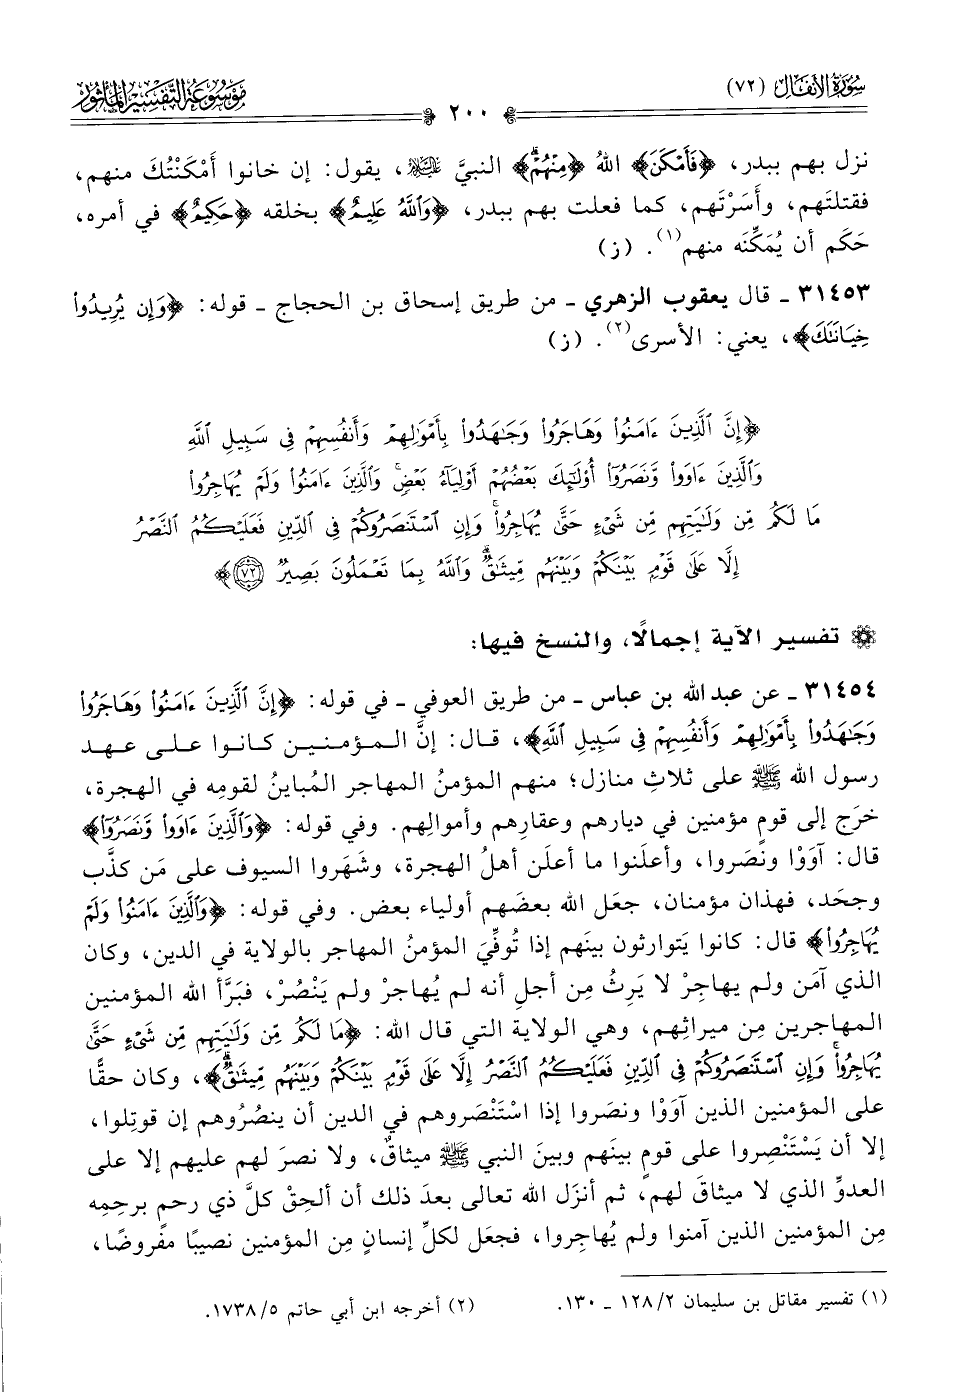 سُورَةُ الأَنفَال (٧٢)
موسوعة التفسير المأثور
٢٠٠
نزل بهم ببدر، ﴿فَأَمْكَنَ﴾ اللهُ ﴿مِنْهُمْ﴾ النبيَّ ﷺ، يقول: إن خانوا أَمْكَنْتُكَ منهم،
فقتلتَهم، وأَسَرْتَهم، كما فعلت بهم ببدر، ﴿وَٱللَّهُ عَلِيمٌ﴾ بخلقه ﴿حَكِيمٌ﴾ في أمره،
حَكَم أن يُمَكِّنَه منهم(١). (ز)
٣١٤٥٣ ـ قال يعقوب الزهري ـ من طريق إسحاق بن الحجاج ـ قوله: ﴿وَإِن يُرِيدُواْ
خِيَانَتَكَ﴾، يعني: الأسرى(٢). (ز)
﴿إِنَّ ٱلَّذِينَ ءَامَنُواْ وَهَاجَرُواْ وَجَٰهَدُواْ بِأَمْوَٰلِهِمْ وَأَنفُسِهِمْ فِى سَبِيلِ ٱللَّهِ
وَٱلَّذِينَ ءَاوَواْ وَّنَصَرُوٓاْ أُوْلَٰٓئِكَ بَعْضُهُمْ أَوْلِيَآءُ بَعْضٍۚ وَٱلَّذِينَ ءَامَنُواْ وَلَمْ يُهَاجِرُواْ
مَا لَكُم مِّن وَلَٰيَتِهِم مِّن شَىْءٍ حَتَّىٰ يُهَاجِرُواْۚ وَإِنِ ٱسْتَنصَرُوكُمْ فِى ٱلدِّينِ فَعَلَيْكُمُ ٱلنَّصْرُ
إِلَّا عَلَىٰ قَوْمٍۭ بَيْنَكُمْ وَبَيْنَهُم مِّيثَٰقٌۗ وَٱللَّهُ بِمَا تَعْمَلُونَ بَصِيرٌ ٧٢﴾
تفسير الآية إجمالًا، والنسخ فيها:
٣١٤٥٤ ـ عن عبد الله بن عباس ـ من طريق العوفي ـ في قوله: ﴿إِنَّ ٱلَّذِينَ ءَامَنُواْ وَهَاجَرُواْ
وَجَٰهَدُواْ بِأَمْوَٰلِهِمْ وَأَنفُسِهِمْ فِى سَبِيلِ ٱللَّهِ﴾، قال: إنَّ المؤمنين كانوا على عهد
رسول الله ﷺ على ثلاثِ منازل؛ منهم المؤمنُ المهاجر المُباينُ لقومِه في الهجرة،
خرَج إلى قومٍ مؤمنين في ديارهم وعقارِهم وأموالِهم. وفي قوله: ﴿وَٱلَّذِينَ ءَاوَواْ وَّنَصَرُوٓاْ﴾
قال: آوَوْا ونَصَروا، وأعلَنوا ما أعلَن أهلُ الهجرة، وشَهَروا السيوف على مَن كذَّب
وجحَد، فهذان مؤمنان، جعَل الله بعضَهم أولياء بعض. وفي قوله: ﴿وَٱلَّذِينَ ءَامَنُواْ وَلَمْ
يُهَاجِرُواْ﴾ قال: كانوا يَتوارثون بينَهم إذا تُوفِّيَ المؤمنُ المهاجر بالولاية في الدين، وكان
الذي آمَن ولم يهاجِرْ لا يَرِثُ مِن أجلِ أنه لم يُهاجرْ ولم يَنْصُرْ، فبَرَّأ الله المؤمنين
المهاجرين مِن ميراثِهم، وهي الولاية التي قال الله: ﴿مَا لَكُم مِّن وَلَٰيَتِهِم مِّن شَىْءٍ حَتَّىٰ
يُهَاجِرُواْۚ وَإِنِ ٱسْتَنصَرُوكُمْ فِى ٱلدِّينِ فَعَلَيْكُمُ ٱلنَّصْرُ إِلَّا عَلَىٰ قَوْمٍۭ بَيْنَكُمْ وَبَيْنَهُم مِّيثَٰقٌۗ﴾، وكان حقًّا
على المؤمنين الذين آوَوْا ونصَروا إذا اسْتَنْصَروهم في الدين أن ينصُرُوهم إن قوتِلوا،
إلا أن يَسْتَنْصِروا على قومٍ بينَهم وبينَ النبي ﷺ ميثاقٌ، ولا نصرَ لهم عليهم إلا على
العدوِّ الذي لا ميثاقَ لهم، ثم أنزَل الله تعالى بعدَ ذلك أن ألحِقْ كلَّ ذي رحم برحِمِه
مِن المؤمنين الذين آمنوا ولم يُهاجِروا، فجعَل لكلِّ إنسانٍ مِن المؤمنين نصيبًا مفروضًا،
(١) تفسير مقاتل بن سليمان ٢/ ١٢٨ ـ ١٣٠.
(٢) أخرجه ابن أبي حاتم ٥/ ١٧٣٨.